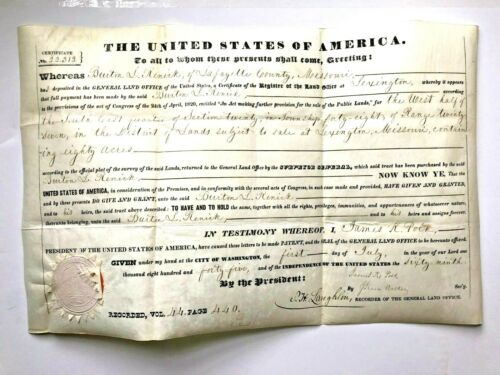 CERTIFICATE
No. 22,313
THE UNITED STATES OF AMERICA.
To all to whom these presents shall come, Greeting:
Whereas Burton L. Renick, of Lafayette County, Missouri,
has deposited in the GENERAL LAND OFFICE of the United States, a Certificate of the Register of the Land Office at Lexington, whereby it appears
that full payment has been made by the said Burton L. Renick according to
the provisions of the act of Congress of the 24th of April, 1820, entitled "An act making further provision for the sale of Public Lands," for the West half
of the quarter of Section twenty, in Township forty eight, of Range twenty
seven, in the District of Lands subject to sale at Lexington, Missouri, contain
ing eighty acres
according to the official plat of the survey of the said Lands, returned to the General Land Office by the SURVEYOR GENERAL, which said tract has been purchased by the said
Burton L. Renick, NOW KNOW YE, That the
UNITED STATES OF AMERICA, in consideration of the Premises, and in conformity with the several acts of Congress, in such case made and provided, HAVE GIVEN AND GRANTED,
and by these presents DO GIVE AND GRANT, unto the said Burton L. Renick,
and to his heirs, the said tract above described: TO HAVE AND TO HOLD the same, together with all the rights, privileges, immunities, and appurtenances of whatsoever nature,
thereunto belonging, unto the said Burton L. Renick, and to his heirs and assigns forever.
IN TESTIMONY WHEREOF, I, James K. Polk,
PRESIDENT OF THE UNITED STATES OF AMERICA, have caused these letters to be made PATENT, and the SEAL of the GENERAL LAND OFFICE to be hereunto affixed.
GIVEN under my hand at the CITY OF WASHINGTON, the first day of July, in the year of our Lord one
thousand eight hundred and forty five, and of the INDEPENDENCE OF THE UNITED STATES the sixty ninth
By the President: James K. Polk
By Sec'y.
RECORDER OF THE GENERAL LAND OFFICE.
RECORDED, VOL. 44 PAGE 440.